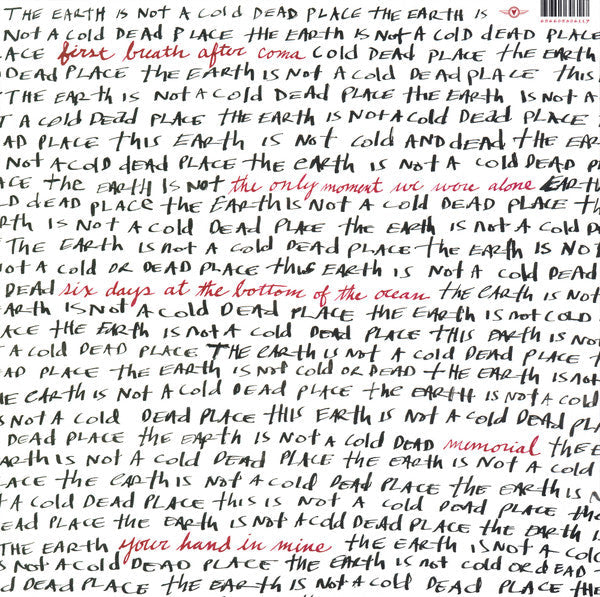 THE EARTH IS NOT A COLD DEAD PLACE THE EARTH IS
NOT A COLD DEAD PLACE THE EARTH IS NOT A COLD DEAD PLACE
ACE first breath after coma COLD DEAD PLACE THE EARTH IS
DEAD PLACE THE EARTH IS NOT A COLD DEAD PLACE THIS
THE EARTH IS NOT A COLD DEAD PLACE THE EARTH IS NOT A
T A COLD DEAD PLACE THE EARTH IS NOT A COLD DEAD PLACE
AD PLACE THIS EARTH IS NOT COLD AND DEAD THE EAR
NOT A COLD DEAD PLACE THE EARTH IS NOT A COLD DEAD P
ACE THE EARTH IS NOT the only moment we were alone EARTH
D DEAD PLACE THE EARTH IS NOT A COLD DEAD PLACE TH
RTH IS NOT A COLD DEAD PLACE THE EARTH IS NOT A COLD
THE EARTH IS NOT A COLD DEAD PLACE THE EARTH IS NO
NOT A COLD OR DEAD PLACE THIS EARTH IS NOT A COLD DEAD
DEAD six days at the bottom of the ocean THE EARTH IS NOT
ARTH IS NOT A COLD DEAD PLACE THE EARTH IS NOT COLD
ACE THE EARTH IS NOT A COLD DEAD PLACE THIS EARTH IS NO
T A COLD DEAD PLACE THE EARTH IS NOT A COLD DEAD PLACE T
AD PLACE THE EARTH IS NOT COLD OR DEAD THE EARTH IS NOT
HE EARTH IS NOT A COLD DEAD PLACE THE EARTH IS NOT A COLD
S NOT A COLD DEAD PLACE THIS EARTH IS NOT A COLD DEAD PL
DEAD PLACE THE EARTH IS NOT A COLD DEAD memorial THE E
ARTH IS NOT A COLD DEAD PLACE THE EARTH IS NOT A COLD
ACE THE EARTH IS NOT A COLD DEAD PLACE THE EARTH IS N
T A COLD DEAD PLACE THIS IS NOT A COLD DEAD PLACE THE
EAD PLACE THE EARTH IS NOT A COLD DEAD PLACE THE EARTH IS
THE EARTH your hand in mine THE EARTH IS NOT A COLD
S NOT A COLD DEAD PLACE THE EARTH IS NOT COLD OR DEAD TH
D DEAD PLACE THE EARTH IS NOT A COLD DEAD PLACE THE EA